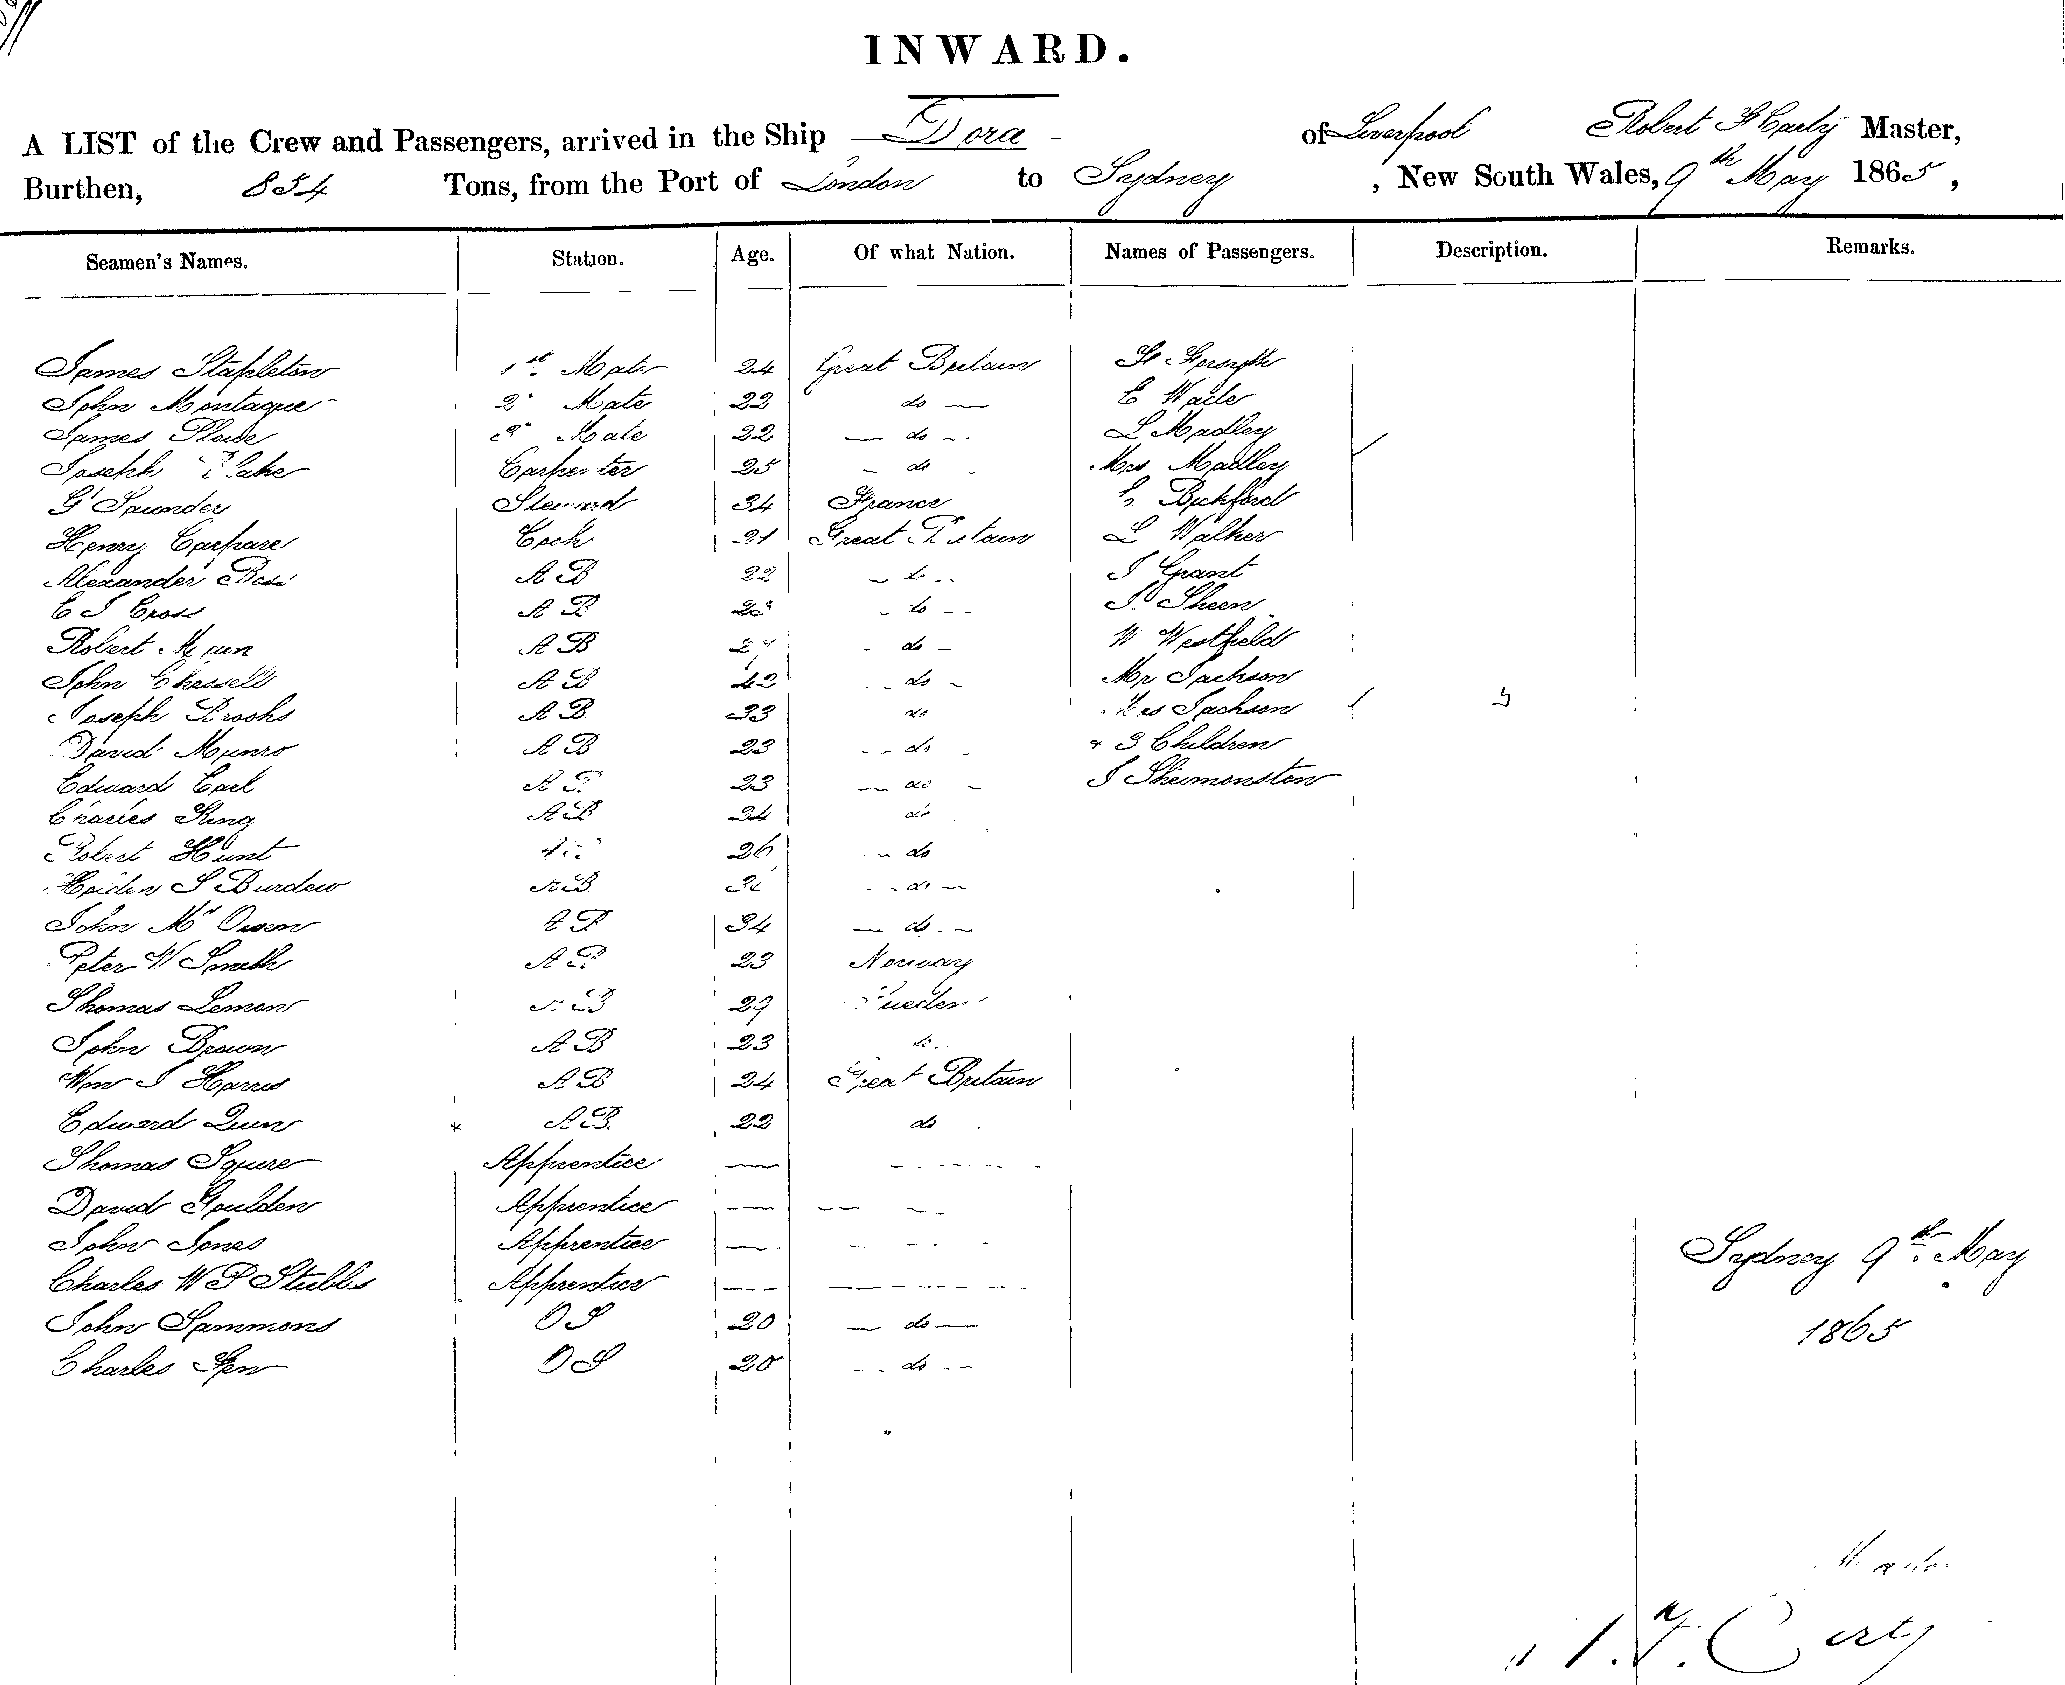 INWARD.
A LIST of the Crew and Passengers, arrived in the Ship Dora of Liverpool Robert F Carly Master,
Burthen, 854 Tons, from the Port of London to Sydney, New South Wales, 9th May 1865,
Seamen's Names. Station. Age. Of what Nation. Names of Passengers. Description. Remarks.
James Stapleton 1st Mate 24 Great Britain Forsyth
John Montague 2d Mate 22 do E Waite
James Mate 22 do L Madley
Joseph Carpenter 25 do Mrs Madley
G Saunder Steward 34 France Bickford
Henry Carpare Cook 21 Great Britain L Walker
Alexander A B 22 do J Grant
C J Cross A B do Sheen
Robert A B do W Westfield
John Chassell A B 42 do Mr Jackson
Joseph Brooks A B 33 do Mrs Jackson
David Munro A B 23 do 3 Children
Edward Earl A B 23 do J
Charles King A B 34 do
Robert Hunt 26 do
S Burdew A B do
John Mc A B 34 do
Peter W Smith A B 23 Norway
Thomas Lemon A B 29 Sueden
John Brown A B 23 do
Wm J Harris A B 24 Great Britain
Edward Quin A B 22 do
Thomas Squire Apprentice
David Goulden Apprentice
John Jones Apprentice
Charles W P Stubbs Apprentice
John Sammons O S 20 do
Charles O S 20 do
Sydney 9th May
1865